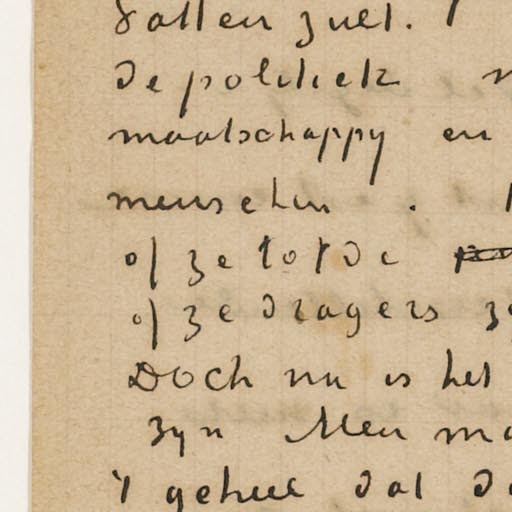 vallen zult.
De politiek
maatschappy en
menschen .
of ze tot de
of ze dragers
Doch nu is het
zyn Men
't geheel dat